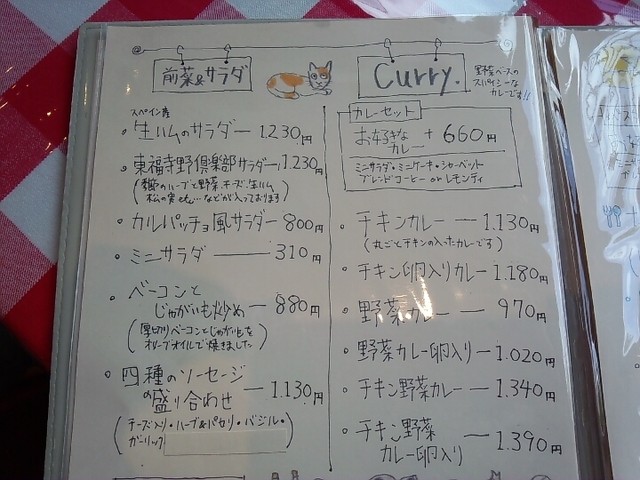 前菜&サラダ
スペイン産
・生ハムのサラダー 1.230円
・東福寺野倶楽部サラダー1.230円
(季節のハーブと野菜、チーズ、生ハム
松の実 etc... などが入っております)
・カルパッチョ風サラダー 800円
・ミニサラダ — 310円
・ベーコンと
じゃがいも炒め — 880円
(厚切りベーコンとじゃがいもを
オリーブオイルで焼きました)
・四種のソーセージ
の盛り合わせ — 1.130円
(チーズ入り・ハーブ&パセリ・バジル・
ガーリック)
Curry.
野菜ベースの
スパイシーな
カレーです!!
カレーセット
お好きな
カレー + 660円
ミニサラダ・ミニケーキ・シャーベット
ブレンドコーヒー or レモンティ
・チキンカレー — 1.130円
(丸ごとチキンの入ったカレーです)
・チキン卵入りカレー 1.180円
・野菜カレー — 970円
・野菜カレー卵入り — 1.020円
・チキン野菜カレー — 1.340円
・チキン野菜
カレー卵入り — 1.390円